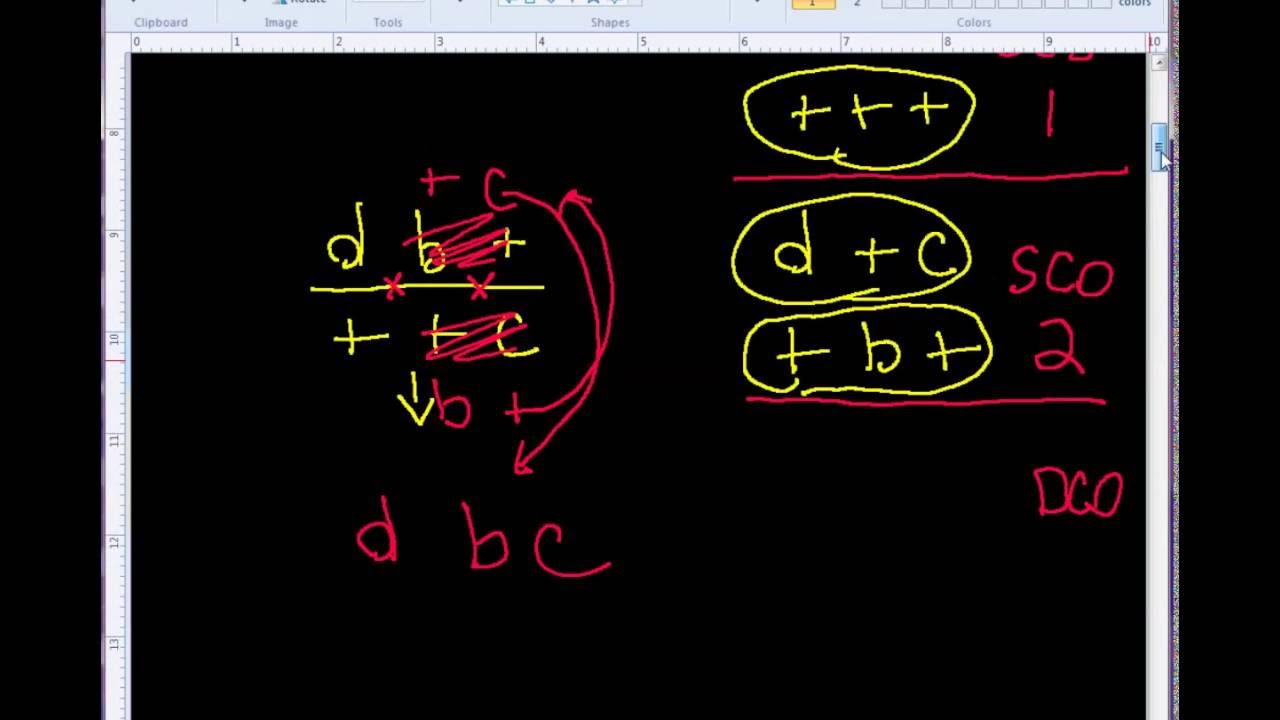 Rotate 1 2 colors
Clipboard Image Tools Shapes Colors
0 1 2 3 4 5 6 7 8 9 10
8
9
10
11
12
13
+ c
d b +
x x
+ + c
b +
d b c
+ + + 1
d + c SCO
+ b + 2
DCO